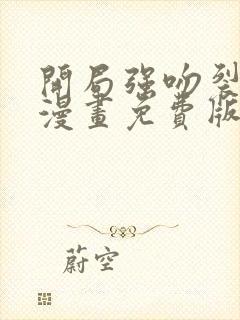 開局強吻裂
漫畫免費版
蔚空